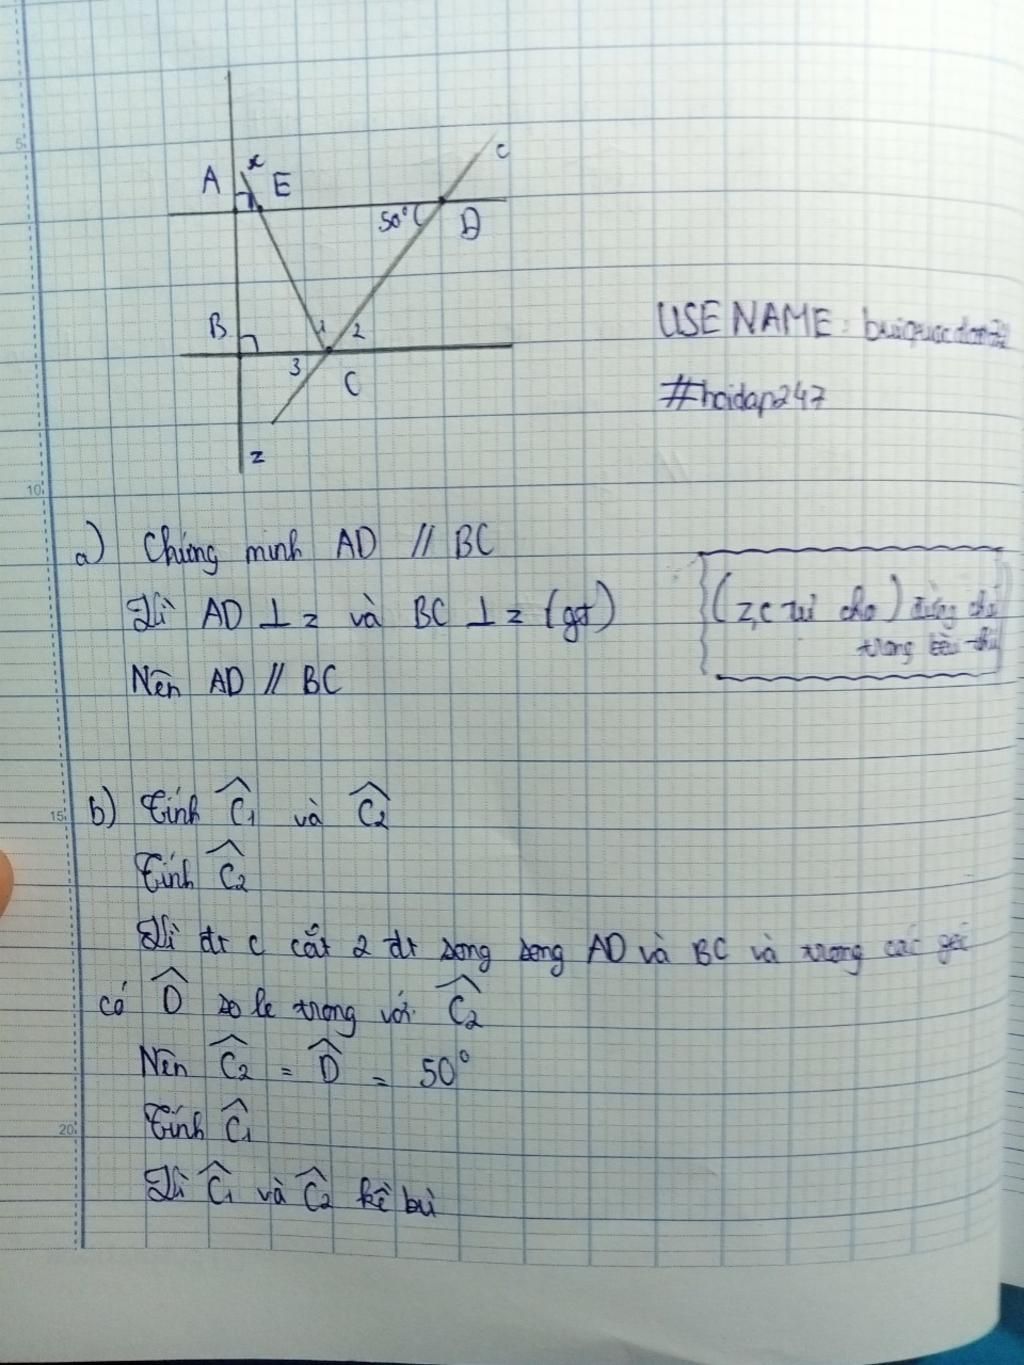 A x E c
50° D
B 1 2
3 C
z
USE NAME:
#hoidap247
a) Chứng minh AD // BC
Vì AD ⊥ z và BC ⊥ z (gt)
Nên AD // BC
(z,c tự cho)
trong
b) Tính Ĉ1 và Ĉ2
Tính Ĉ2
Vì đt c cắt 2 đt song song AD và BC và trong các góc
có D̂ so le trong với Ĉ2
Nên Ĉ2 = D̂ = 50°
Tính Ĉ1
Vì Ĉ1 và Ĉ2 kề bù